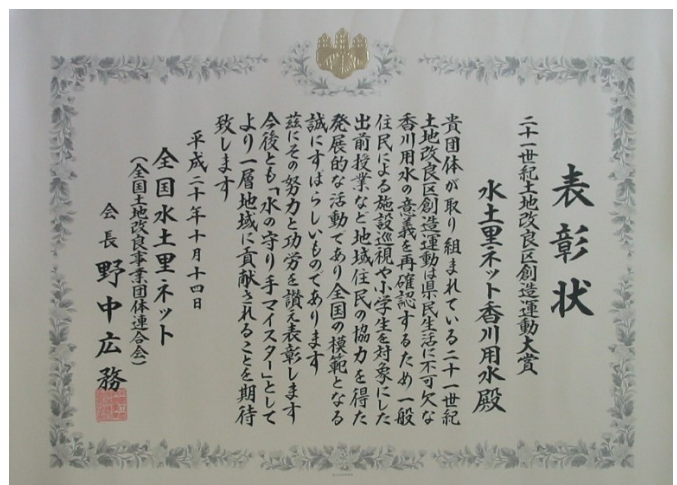 表彰状
二十一世紀土地改良区創造運動大賞
水土里ネット香川用水殿
貴団体が取り組まれている二十一世紀
土地改良区創造運動は県民生活に不可欠な
香川用水の意義を再確認するため一般
住民による施設巡視や小学生を対象にした
出前授業など地域住民の協力を得た
発展的な活動であり全国の模範となる
誠にすばらしいものであります
茲にその努力と功労を讃え表彰します
今後とも「水の守り手マイスター」として
より一層地域に貢献されることを期待
致します
平成二十年十月十四日
全国水土里ネット
(全国土地改良事業団体連合会)
会長 野中広務